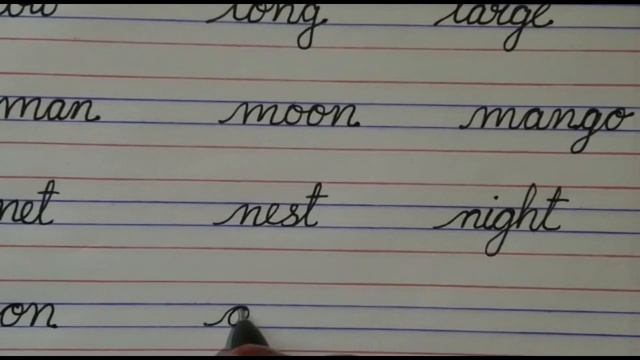 long large
man moon mango
net nest night
on o